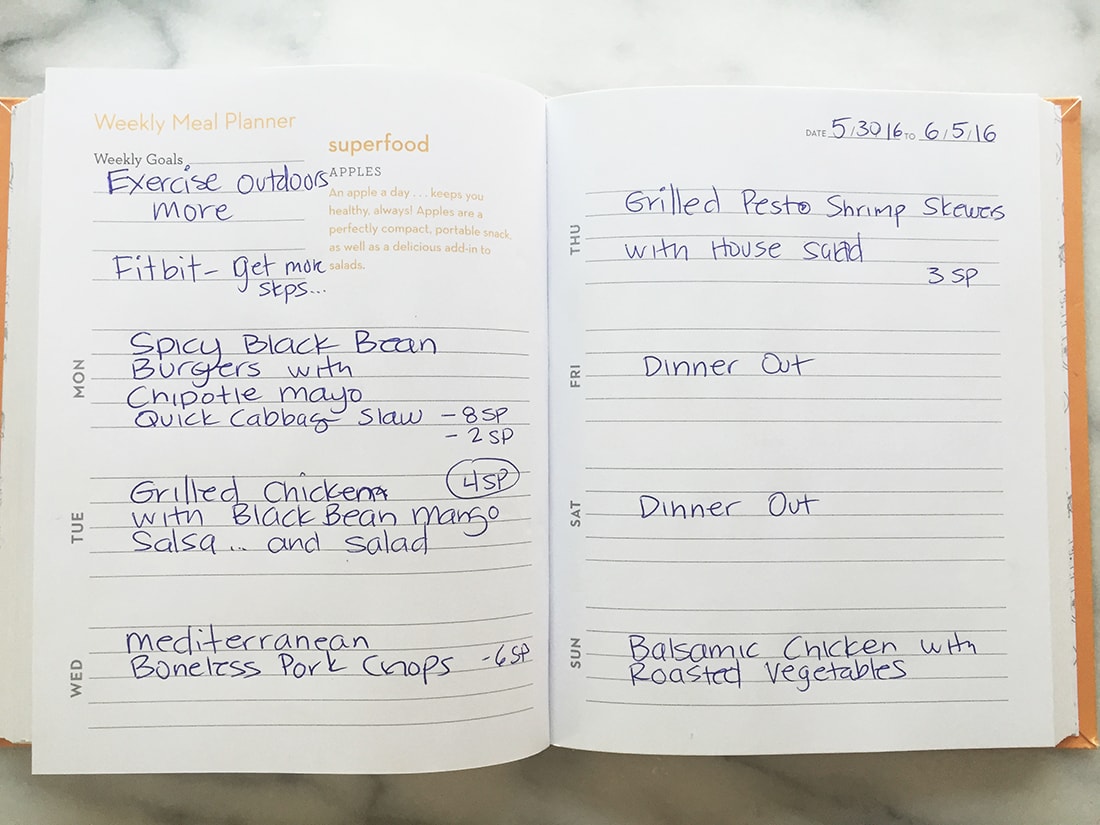 Weekly Meal Planner
Weekly Goals
Exercise outdoors
more
Fitbit - get more
steps...
superfood
APPLES
An apple a day . . . keeps you
healthy, always! Apples are a
perfectly compact, portable snack,
as well as a delicious add-in to
salads.
MON
Spicy Black Bean
Burgers with
Chipotle mayo
Quick Cabbage Slaw - 8 SP
- 2 SP
TUE
4 SP
Grilled Chicken
with Black Bean mango
Salsa... and salad
WED
mediterranean
Boneless Pork Chops - 6 SP
DATE 5/30/16 TO 6/5/16
THU
Grilled Pesto Shrimp Skewers
with House salad
3 SP
FRI
Dinner Out
SAT
Dinner Out
SUN
Balsamic Chicken with
Roasted Vegetables